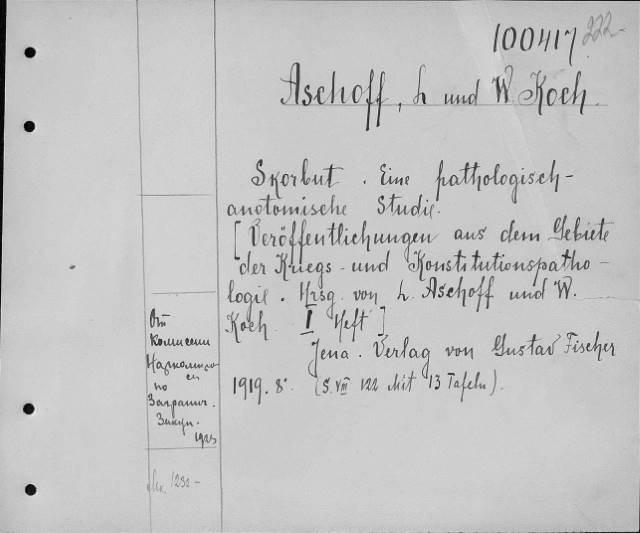 100417 222-
Aschoff, L und W. Koch.
Skorbut. Eine pathologisch-
anatomische Studie.
[Veröffentlichungen aus dem Gebiete
der Kriegs- und Konstitutionspatho-
logie. Hrsg. von L. Aschoff und W.
Koch I Heft]
Jena. Verlag von Gustav Fischer
1919. 8°. (S. VIII 122 Mit 13 Tafeln).
От
комиссии
по
Загранич.
Закуп.
1925
1232-